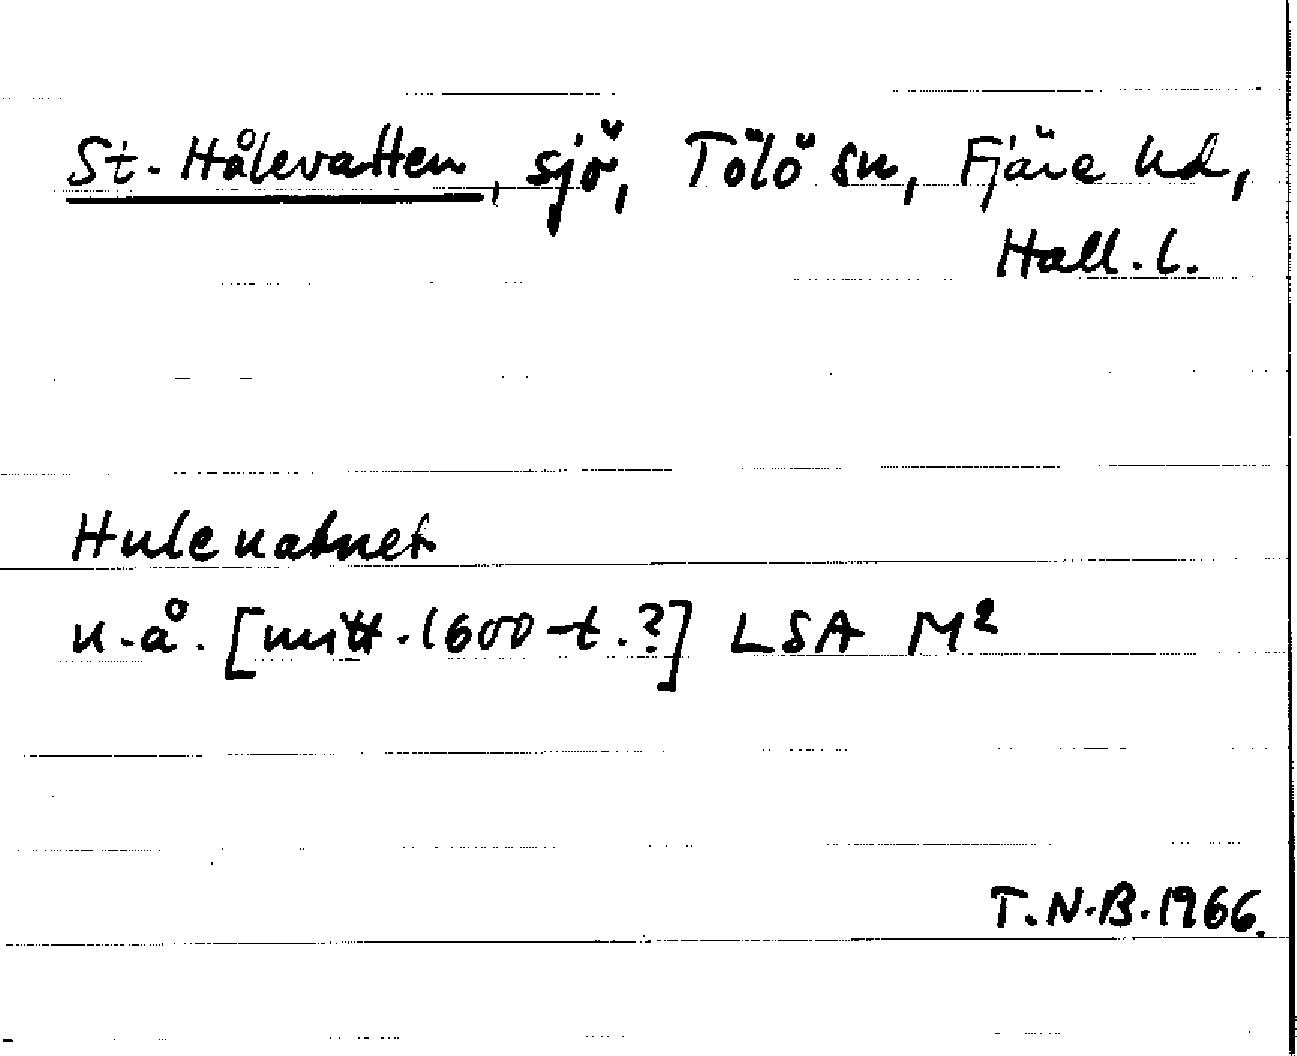 St. Hålevatten, sjö, Tölö sn, Fjäre hd,
Hall. l.
Hulevatnet
u.å. [mitt. 1600-t.?] LSA M²
T.N.B. 1966.